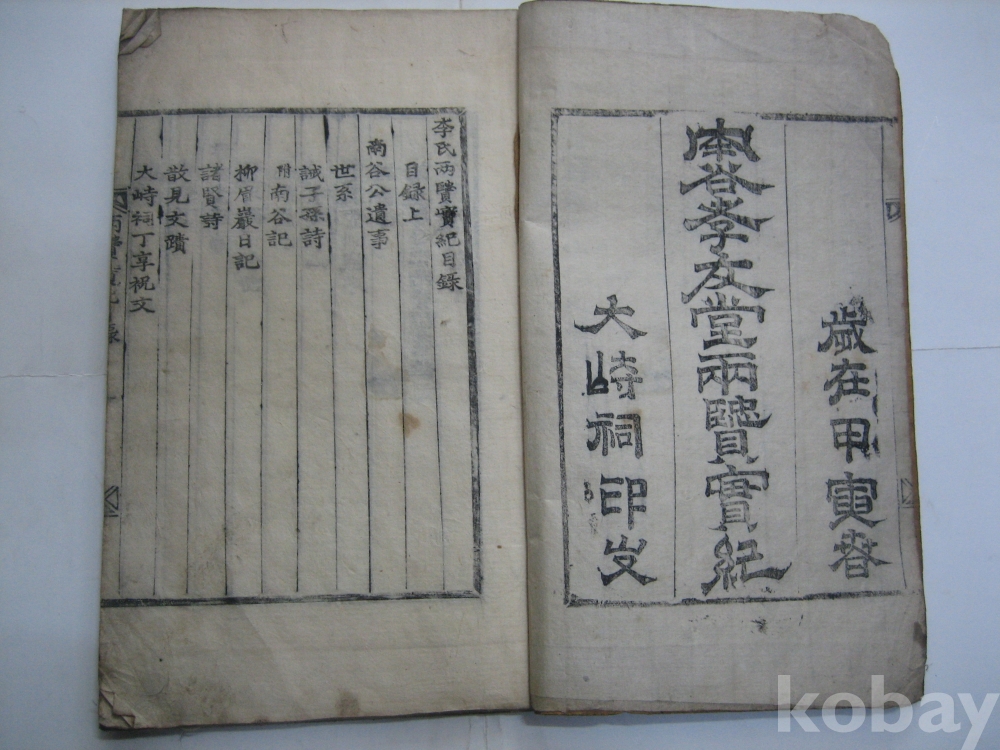 歲在甲寅春
南谷孝友堂兩賢實紀
大峙祠印
李氏兩賢實紀目錄
目錄上
南谷公遺事
世系
誡子孫詩
附南谷記
柳眉巖日記
諸賢詩
散見文蹟
大峙祠丁享祝文
kobay